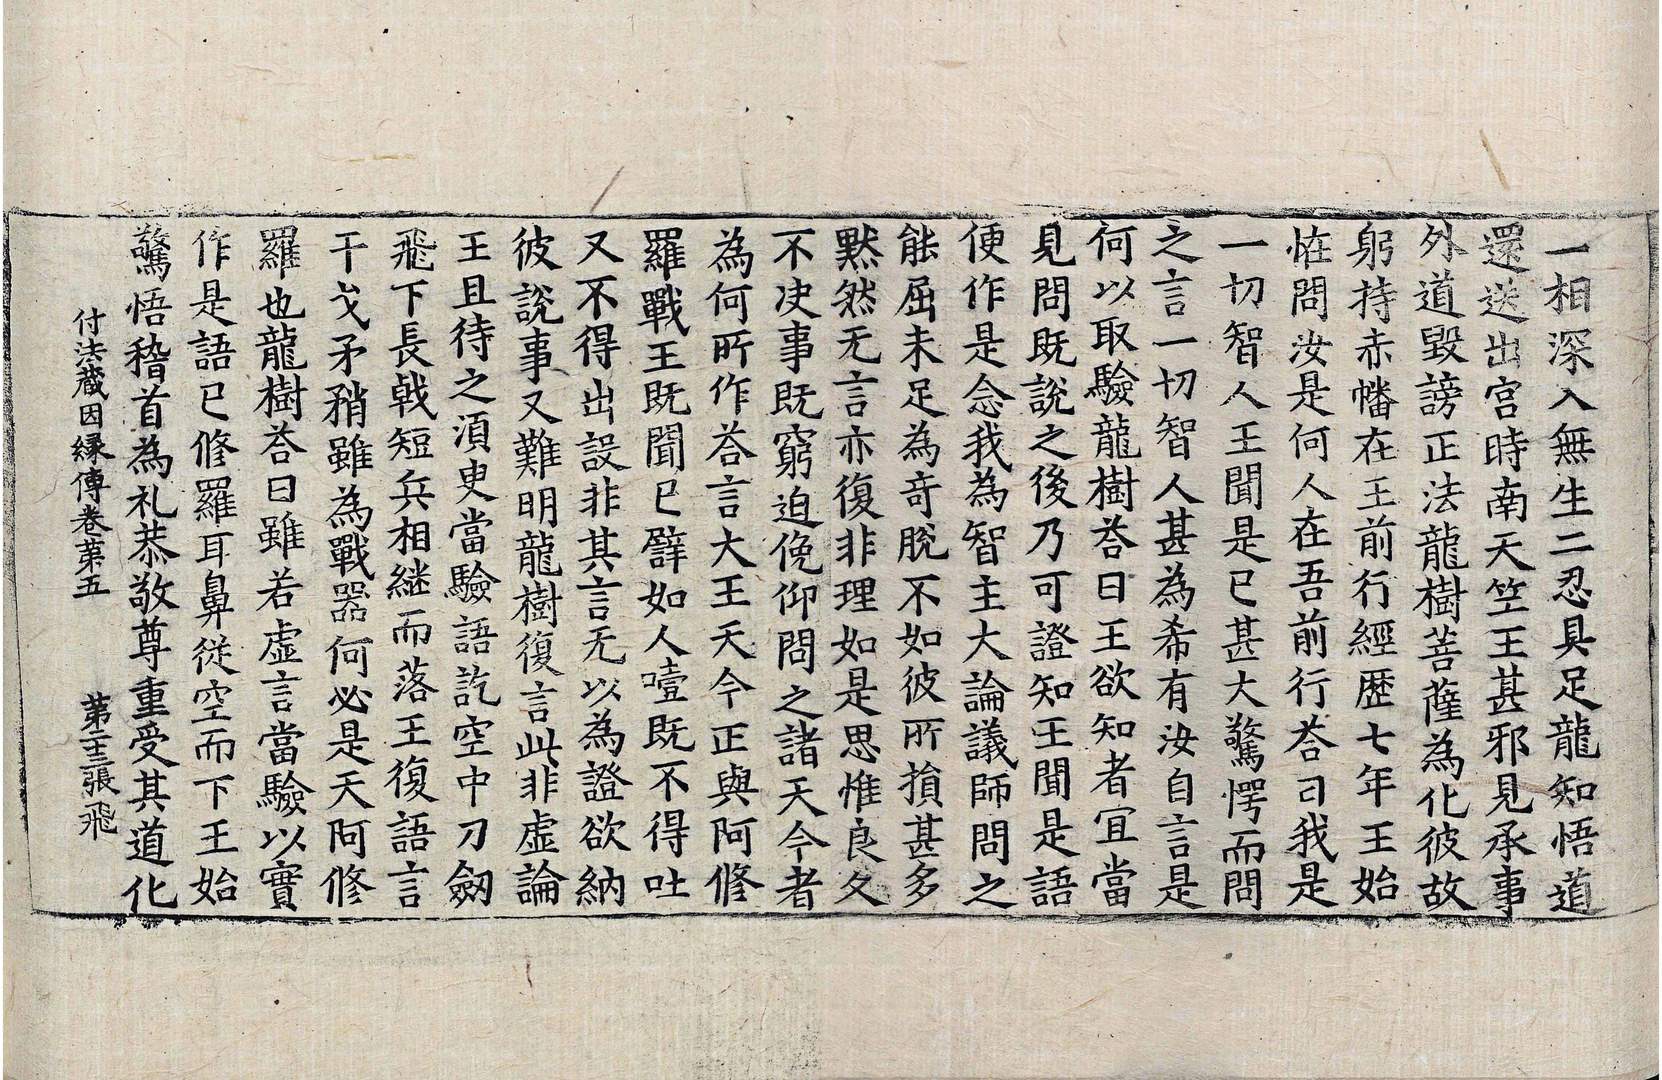 一相深入無生二忍具足龍知悟道
還送出宮時南天竺王甚邪見承事
外道毀謗正法龍樹菩薩為化彼故
躬持赤幡在王前行經歷七年王始
恠問汝是何人在吾前行荅曰我是
一切智人王聞是已甚大驚愕而問
之言一切智人甚為希有汝自言是
何以取驗龍樹荅曰王欲知者宜當
見問既說之後乃可證知王聞是語
便作是念我為智主大論議師問之
能屈未足為奇脫不如彼所損甚多
默然无言亦復非理如是思惟良久
不决事既窮迫俛仰問之諸天今者
為何所作荅言大王天今正與阿修
羅戰王既聞已譬如人噎既不得吐
又不得出設非其言无以為證欲納
彼說事又難明龍樹復言此非虛論
王且待之須臾當驗語訖空中刀劒
飛下長戟短兵相繼而落王復語言
干戈矛矟雖為戰器何必是天阿修
羅也龍樹荅曰雖若虛言當驗以實
作是語已修羅耳鼻從空而下王始
驚悟稽首為礼恭敬尊重受其道化
付法藏因縁傳卷第五　第二十三張　飛